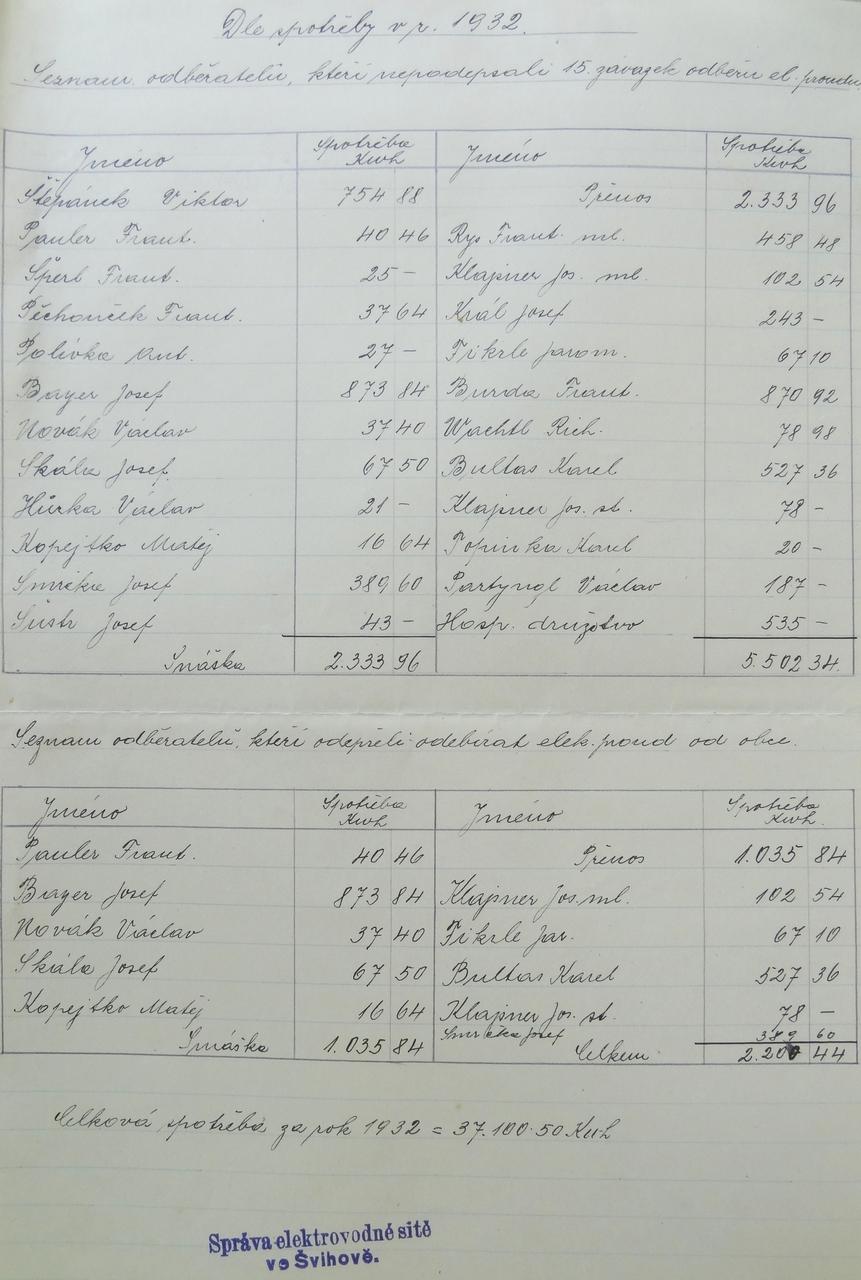 Dle spotřeby v r. 1932.
Seznam odběratelů, kteří nepodepsali 15. závazek odběru el. proudu.
Jméno Spotřeba Kwh Jméno Spotřeba Kwh
Štěpánek Viktor 754 88 Přenos 2.333 96
Pauler Frant. 40 46 Rys Frant. ml. 458 48
Šperl Frant. 25 – Klajner Jos. ml. 102 54
Pěchouček Frant. 37 64 Král Josef 243 –
Polívka Ant. 27 – Fikrle Jarom. 67 10
Bayer Josef 873 84 Burda Frant. 870 92
Novák Václav 37 40 Wachtl Rich. 78 98
Skála Josef. 67 50 Bultas Karel 527 36
Hůrka Václav 21 – Klajner Jos. st. 78 –
Kopejtko Matěj 16 64 Topinka Karel 20 –
Smrčka Josef 389 60 Partyngl Václav 187 –
Šustr Josef 43 – Hosp. družstvo 535 –
Snáška 2.333 96 5.502 34.
Seznam odběratelů, kteří odepřeli odebírat elek. proud od obce.
Jméno Spotřeba Kwh Jméno Spotřeba Kwh.
Pauler Frant. 40 46 Přenos 1.035 84
Bayer Josef 873 84 Klajner Jos. ml. 102 54
Novák Václav 37 40 Fikrle Jar. 67 10
Skála Josef 67 50 Bultas Karel 527 36
Kopejtko Matěj 16 64 Klajner Jos. st. 78 –
Smrčka Josef 389 60
Snáška 1.035 84 Celkem 2.200 44
Celková spotřeba za rok 1932 = 37.100·50 Kwh
Správa elektrovodné sítě
ve Švihově.